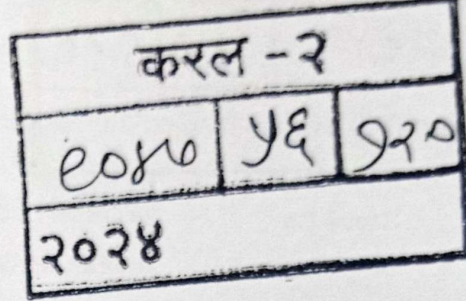 करल - २
९०४७ ५६ १२०
२०२४